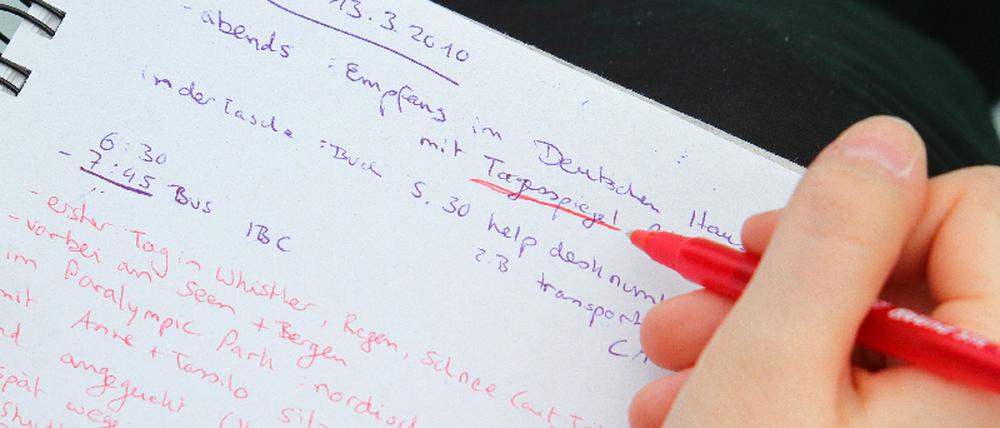 13.3.2010
- abends : Empfang im Deutschen Haus
mit Tagesspiegel
in der Tasche : Buch S. 30 help desk num
z.B transport
6:30
- 7:45 Bus IBC
- erster Tag in Whistler, Regen, Schnee (auf
- vorbei an Seen + Bergen
im Paralympic Park nordisch
mit Anne + Tassilo
angeguckt
spät